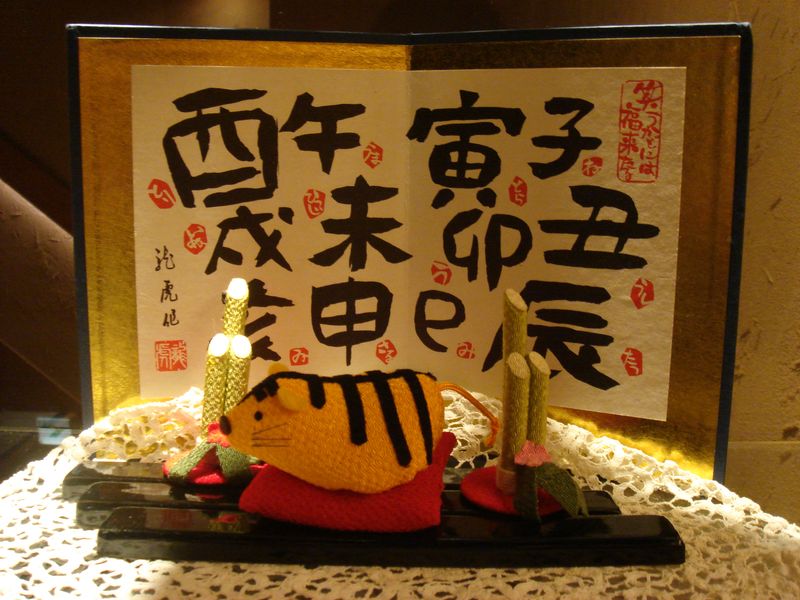 笑うかどには
福来たる
子
ね
丑
うし
寅
とら
卯
う
辰
たつ
巳
み
午
うま
未
ひつじ
申
さる
酉
戌
いぬ
亥
龍虎作